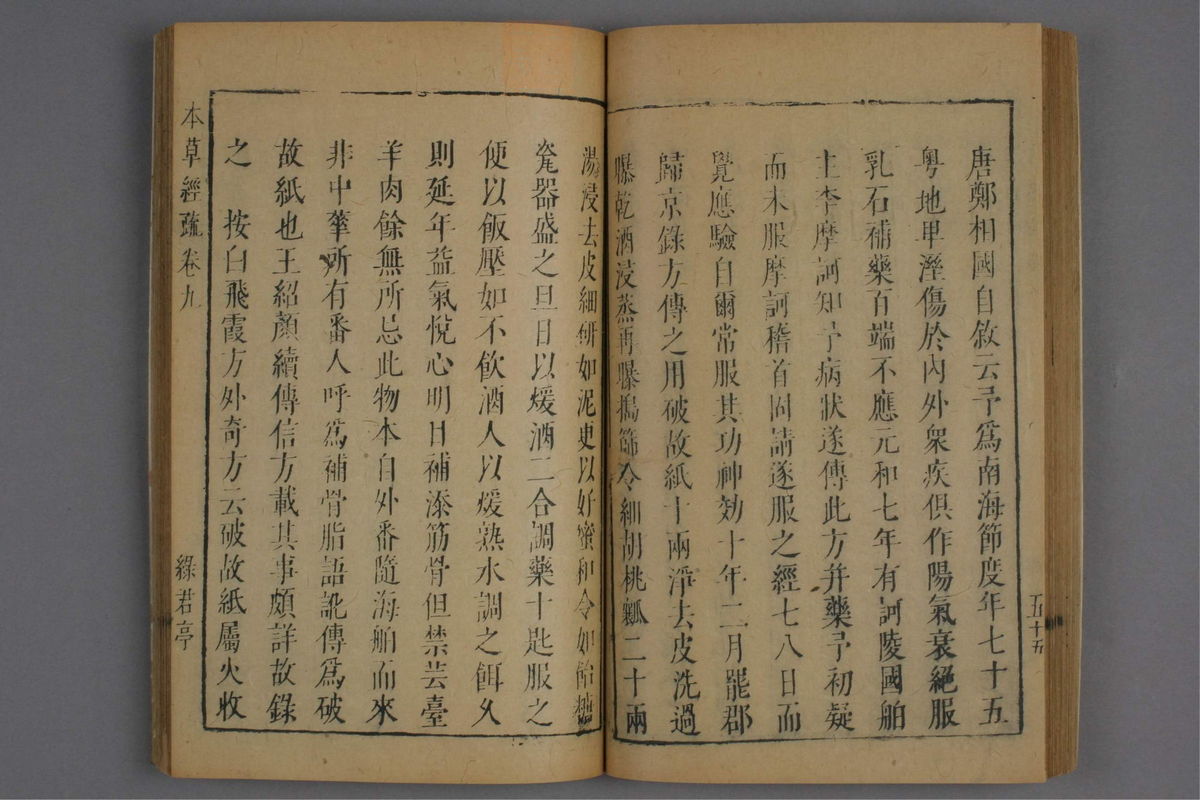 唐鄭相國自敘云予爲南海節度年七十五
粤地卑溼傷於內外衆疾俱作陽氣衰絕服
乳石補藥百端不應元和七年有訶陵國舶
主李摩訶知予病狀遂傳此方并藥予初疑
而未服摩訶稽首固請遂服之經七八日而
覺應驗自爾常服其功神効十年二月罷郡
歸京錄方傳之用破故紙十兩淨去皮洗過
曝乾酒浸蒸再曝搗篩令細胡桃瓤二十兩
五十五
湯浸去皮細硏如泥更以好蜜和令如飴糖
瓷器盛之旦日以煖酒二合調藥十匙服之
便以飯壓如不飲酒人以煖熟水調之餌久
則延年益氣悅心明目補添筋骨但禁芸薹
羊肉餘無所忌此物本自外番隨海舶而來
非中華所有番人呼爲補骨脂語訛傳爲破
故紙也王紹顏續傳信方載其事頗詳故錄
之　按白飛霞方外奇方云破故紙屬火收
本草經疏卷九
綠君亭